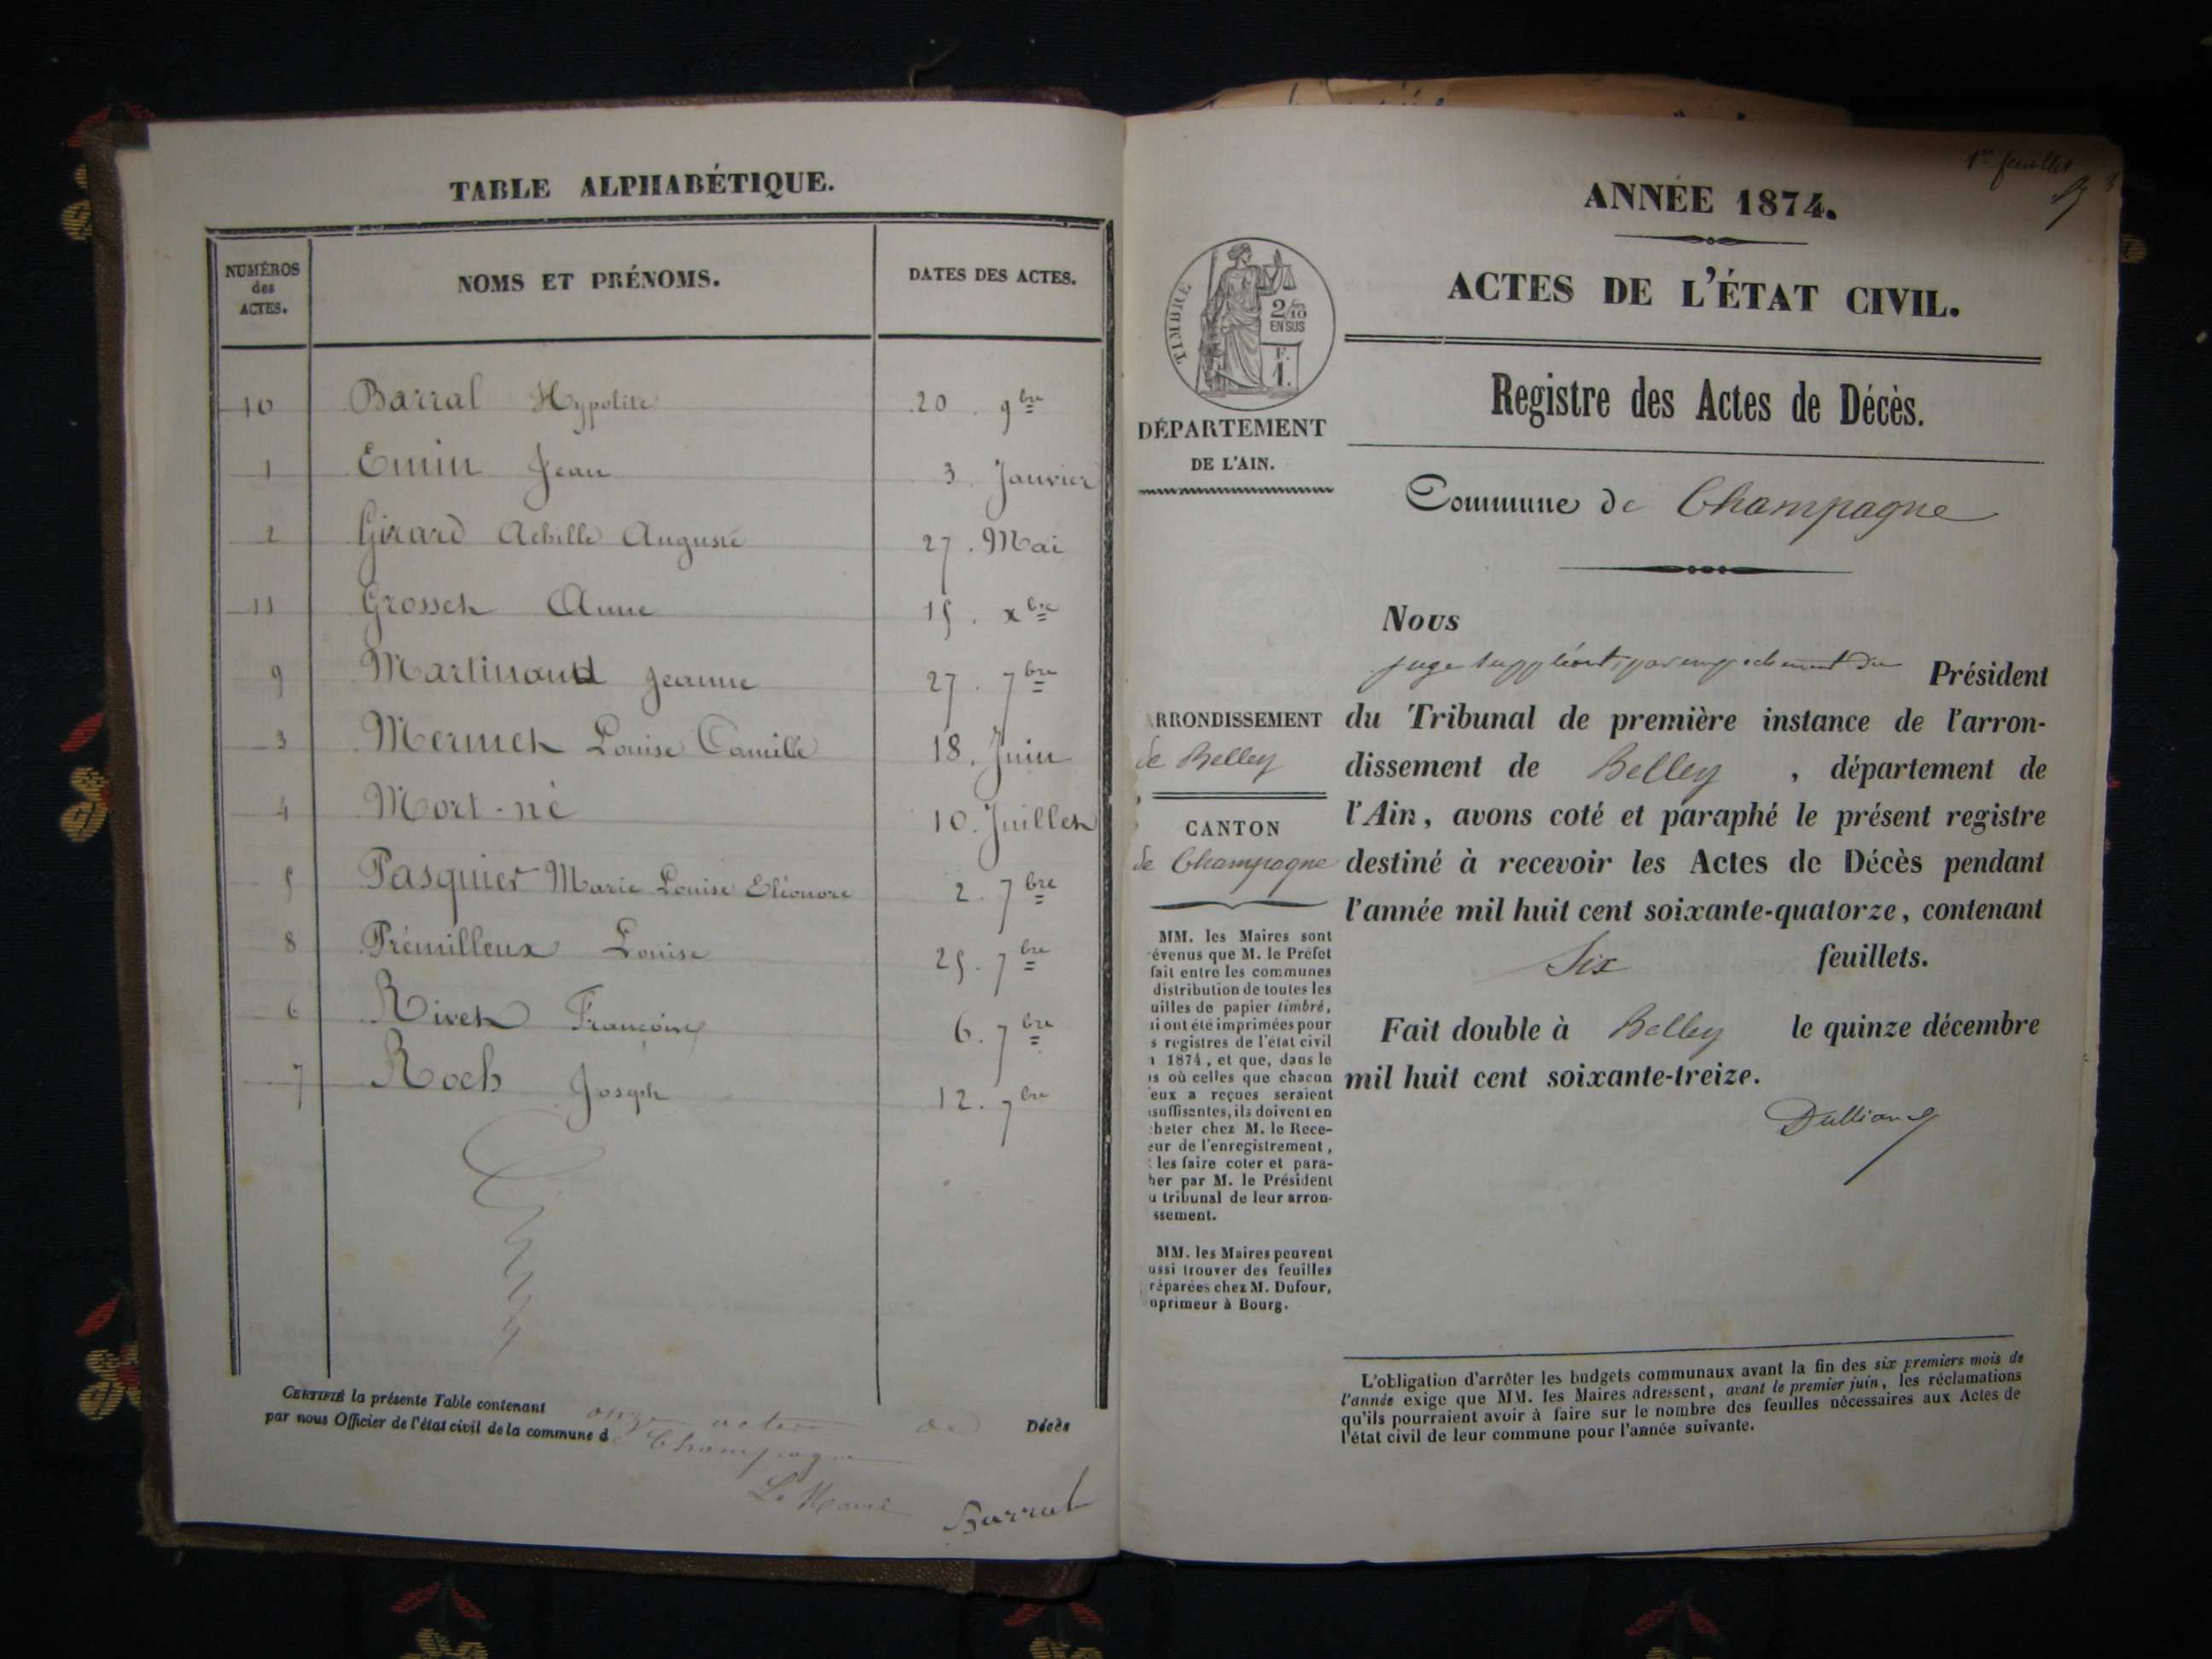 TABLE ALPHABÉTIQUE.
NUMÉROS des ACTES.
NOMS ET PRÉNOMS.
DATES DES ACTES.
10 Barral Hypolite 20. 9bre
1 Emin Jean 3. Janvier
2 Girard Achille Auguste 27. Mai
11 Grosset Anne 15. xbre
9 Martinaud Jeanne 27. 7bre
3 Mermet Louise Camille 18. Juin
4 Mort-né 10. Juillet
5 Pasquier Marie Louise Eléonore 2. 7bre
8 Prémilleux Louise 25. 7bre
6 Rivet Françoise 6. 7bre
7 Roch Joseph 12. 7bre
CERTIFIÉ la présente Table contenant onze actes de Décès
par nous Officier de l'état civil de la commune de Champagne
Le Maire
Barral
1er feuillet
ANNÉE 1874.
ACTES DE L'ÉTAT CIVIL.
TIMBRE
2/10
EN SUS
F.
1.
DÉPARTEMENT
DE L'AIN.
Registre des Actes de Décès.
Commune de Champagne
ARRONDISSEMENT
de Belley
CANTON
de Champagne
MM. les Maires sont
évenus que M. le Préfet
fait entre les communes
distribution de toutes les
uilles de papier timbré,
ui ont été imprimées pour
s registres de l'état civil
1874, et que, dans le
as où celles que chacun
'eux a reçues seraient
nsuffisantes, ils doivent en
cheter chez M. le Rece-
eur de l'enregistrement,
les faire coter et para-
her par M. le Président
u tribunal de leur arron-
ssement.
MM. les Maires peuvent
ussi trouver des feuilles
réparées chez M. Dufour,
mprimeur à Bourg.
Nous
juge suppléant, par empêchement du Président
du Tribunal de première instance de l'arron-
dissement de Belley, département de
l'Ain, avons coté et paraphé le présent registre
destiné à recevoir les Actes de Décès pendant
l'année mil huit cent soixante-quatorze, contenant
Six feuillets.
Fait double à Belley le quinze décembre
mil huit cent soixante-treize.
L'obligation d'arrêter les budgets communaux avant la fin des six premiers mois de
l'année exige que MM. les Maires adressent, avant le premier juin, les réclamations
qu'ils pourraient avoir à faire sur le nombre des feuilles nécessaires aux Actes de
l'état civil de leur commune pour l'année suivante.